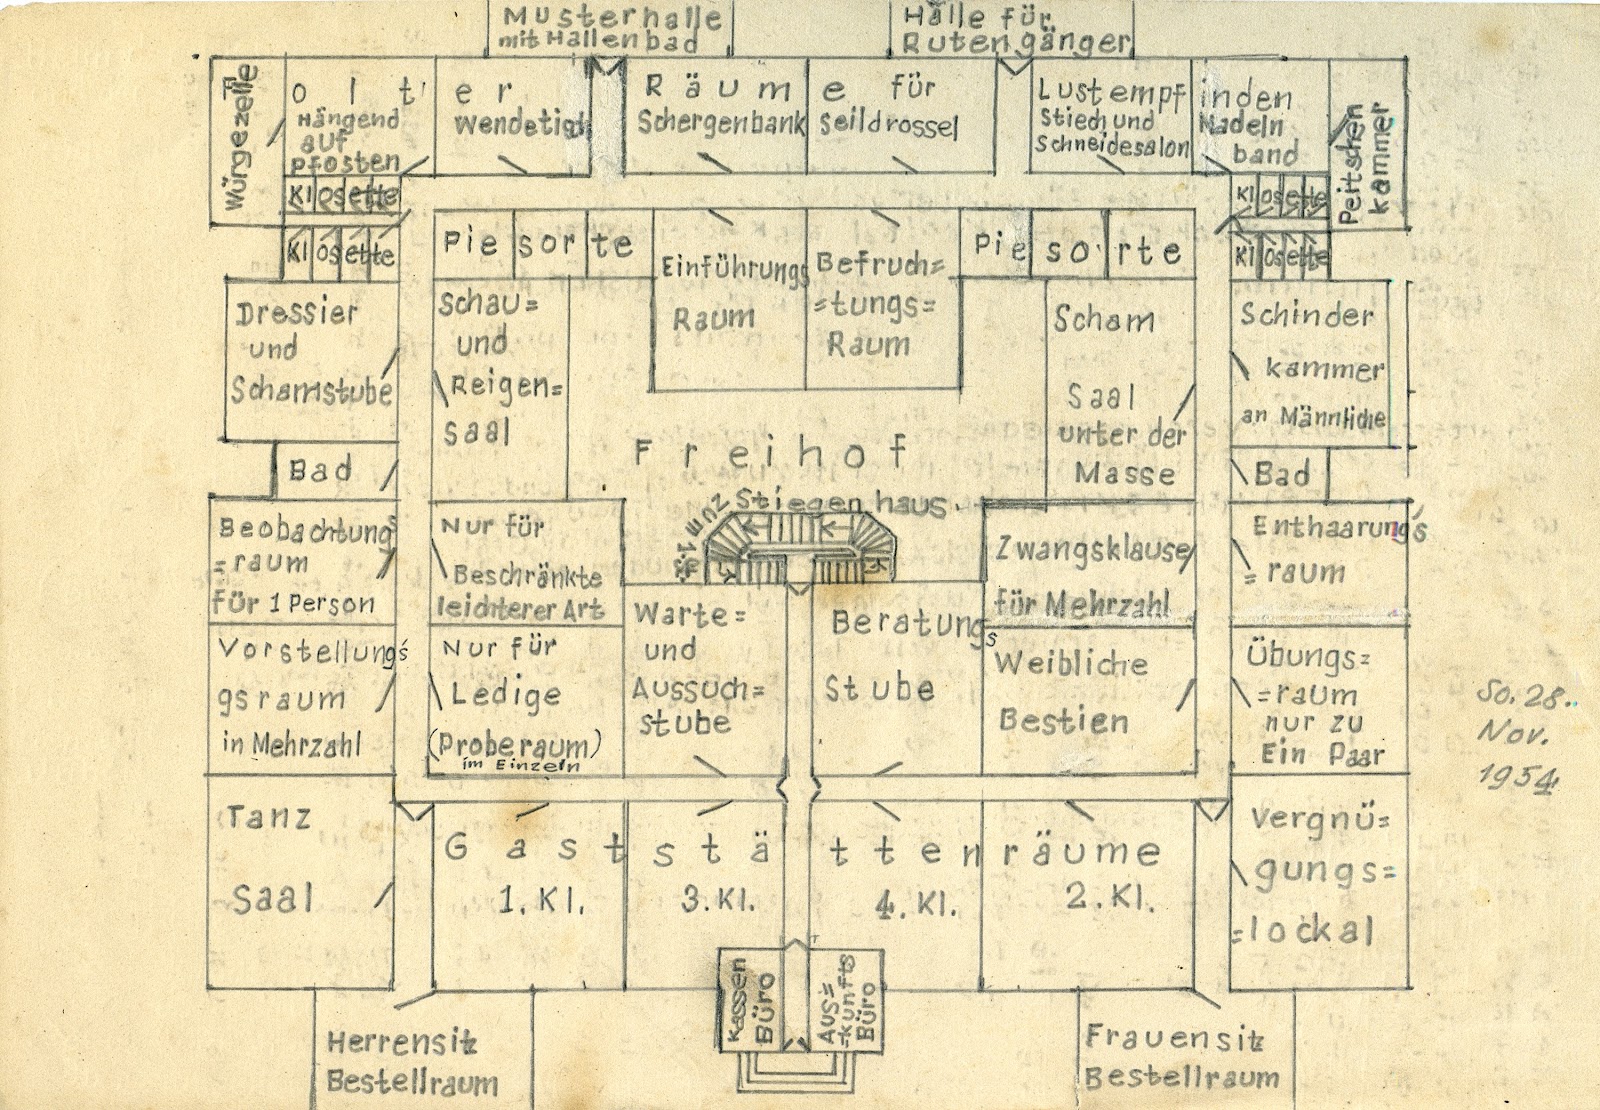 Musterhalle
mit Hallenbad
Halle für
Rutengänger
Würgezelle
Folter Räume für Lustempfinden
Hängend
auf
Pfosten
Wendetigt
Schergenbank
Seildrossel
Stiech und
Schneidesalon
Nadeln
band
Peitschen
kammer
Klosette
Klosette
Klosette
Klosette
Piesorte
Einführungs
Raum
Befruch=
=tungs=
Raum
Piesorte
Dressier
und
Schamstube
Schau=
und
Reigen=
saal
Scham
Saal
unter der
Masse
Schinder
kammer
an Männliche
Freihof
Bad
Bad
Stiegenhaus
zum
Beobachtungs
=raum
für 1 Person
Nur für
Beschränkte
leichterer Art
Zwangsklause
für Mehrzahl
Enthaarung's
=raum
Vorstellung's
gsraum
in Mehrzahl
Nur für
Ledige
(Proberaum)
im Einzeln
Warte=
und
Aussuch=
stube
Beratungs
Stube
Weibliche
Bestien
Übungs=
=raum
nur zu
Ein Paar
So. 28.
Nov.
1954
Tanz
Saal
Gaststättenräume
1. Kl.
3. Kl.
4. Kl.
2. Kl.
Vergnü=
gungs=
=lockal
Kassen
Büro
Aus=
=kunfts
Büro
Herrensitz
Bestellraum
Frauensitz
Bestellraum